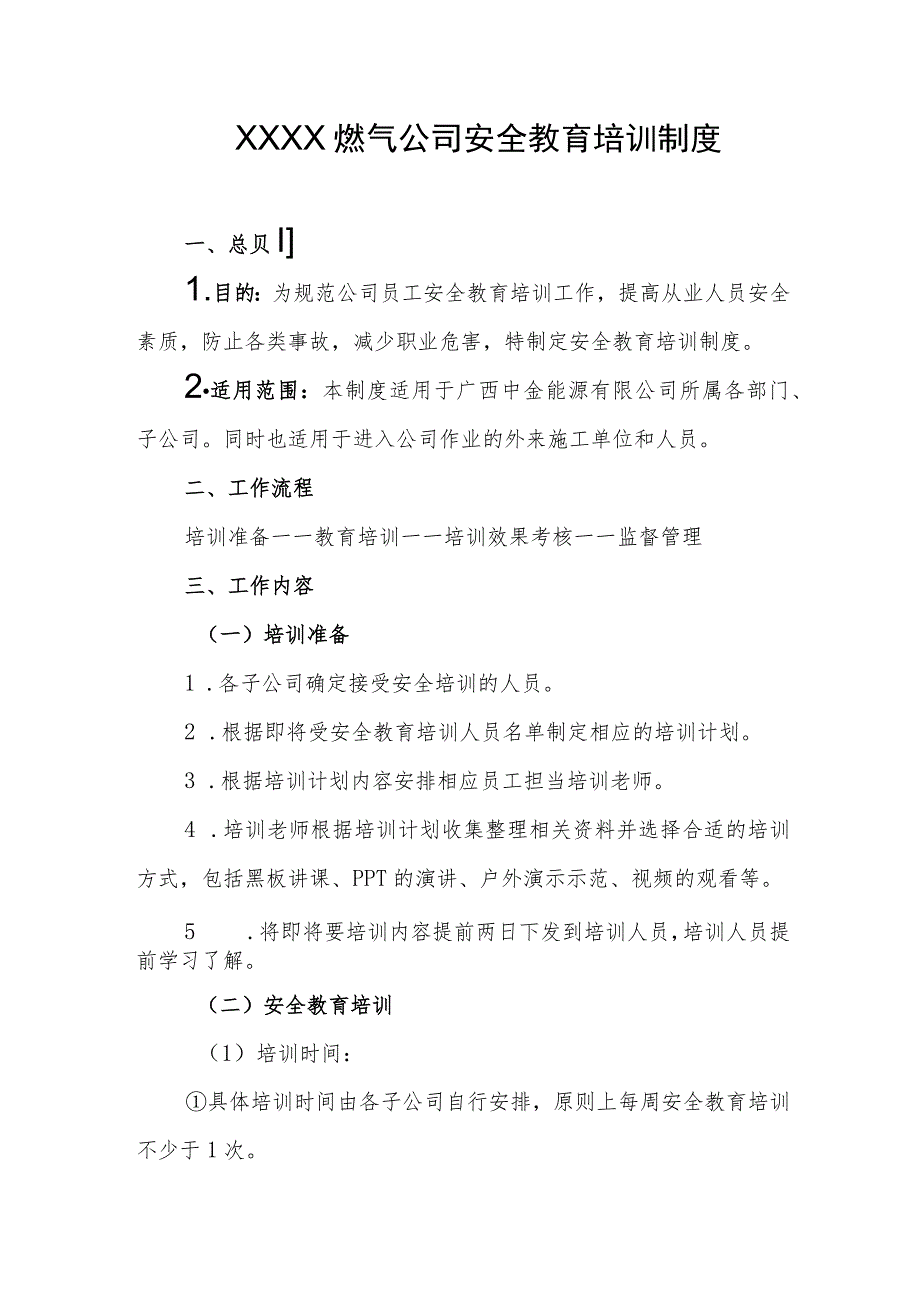 XXXX 燃气公司安全教育培训制度
一、总贝 I]
1.目的：为规范公司员工安全教育培训工作，提高从业人员安全
素质，防止各类事故，减少职业危害，特制定安全教育培训制度。
2•适用范围：本制度适用于广西中金能源有限公司所属各部门、
子公司。同时也适用于进入公司作业的外来施工单位和人员。
二、工作流程
培训准备一一教育培训一一培训效果考核一一监督管理
三、工作内容
（一）培训准备
1 .各子公司确定接受安全培训的人员。
2 .根据即将受安全教育培训人员名单制定相应的培训计划。
3 .根据培训计划内容安排相应员工担当培训老师。
4 .培训老师根据培训计划收集整理相关资料并选择合适的培训
方式，包括黑板讲课、PPT 的演讲、户外演示示范、视频的观看等。
5 .将即将要培训内容提前两日下发到培训人员,培训人员提
前学习了解。
（二）安全教育培训
（1）培训时间：
①具体培训时间由各子公司自行安排，原则上每周安全教育培训
不少于 1 次。